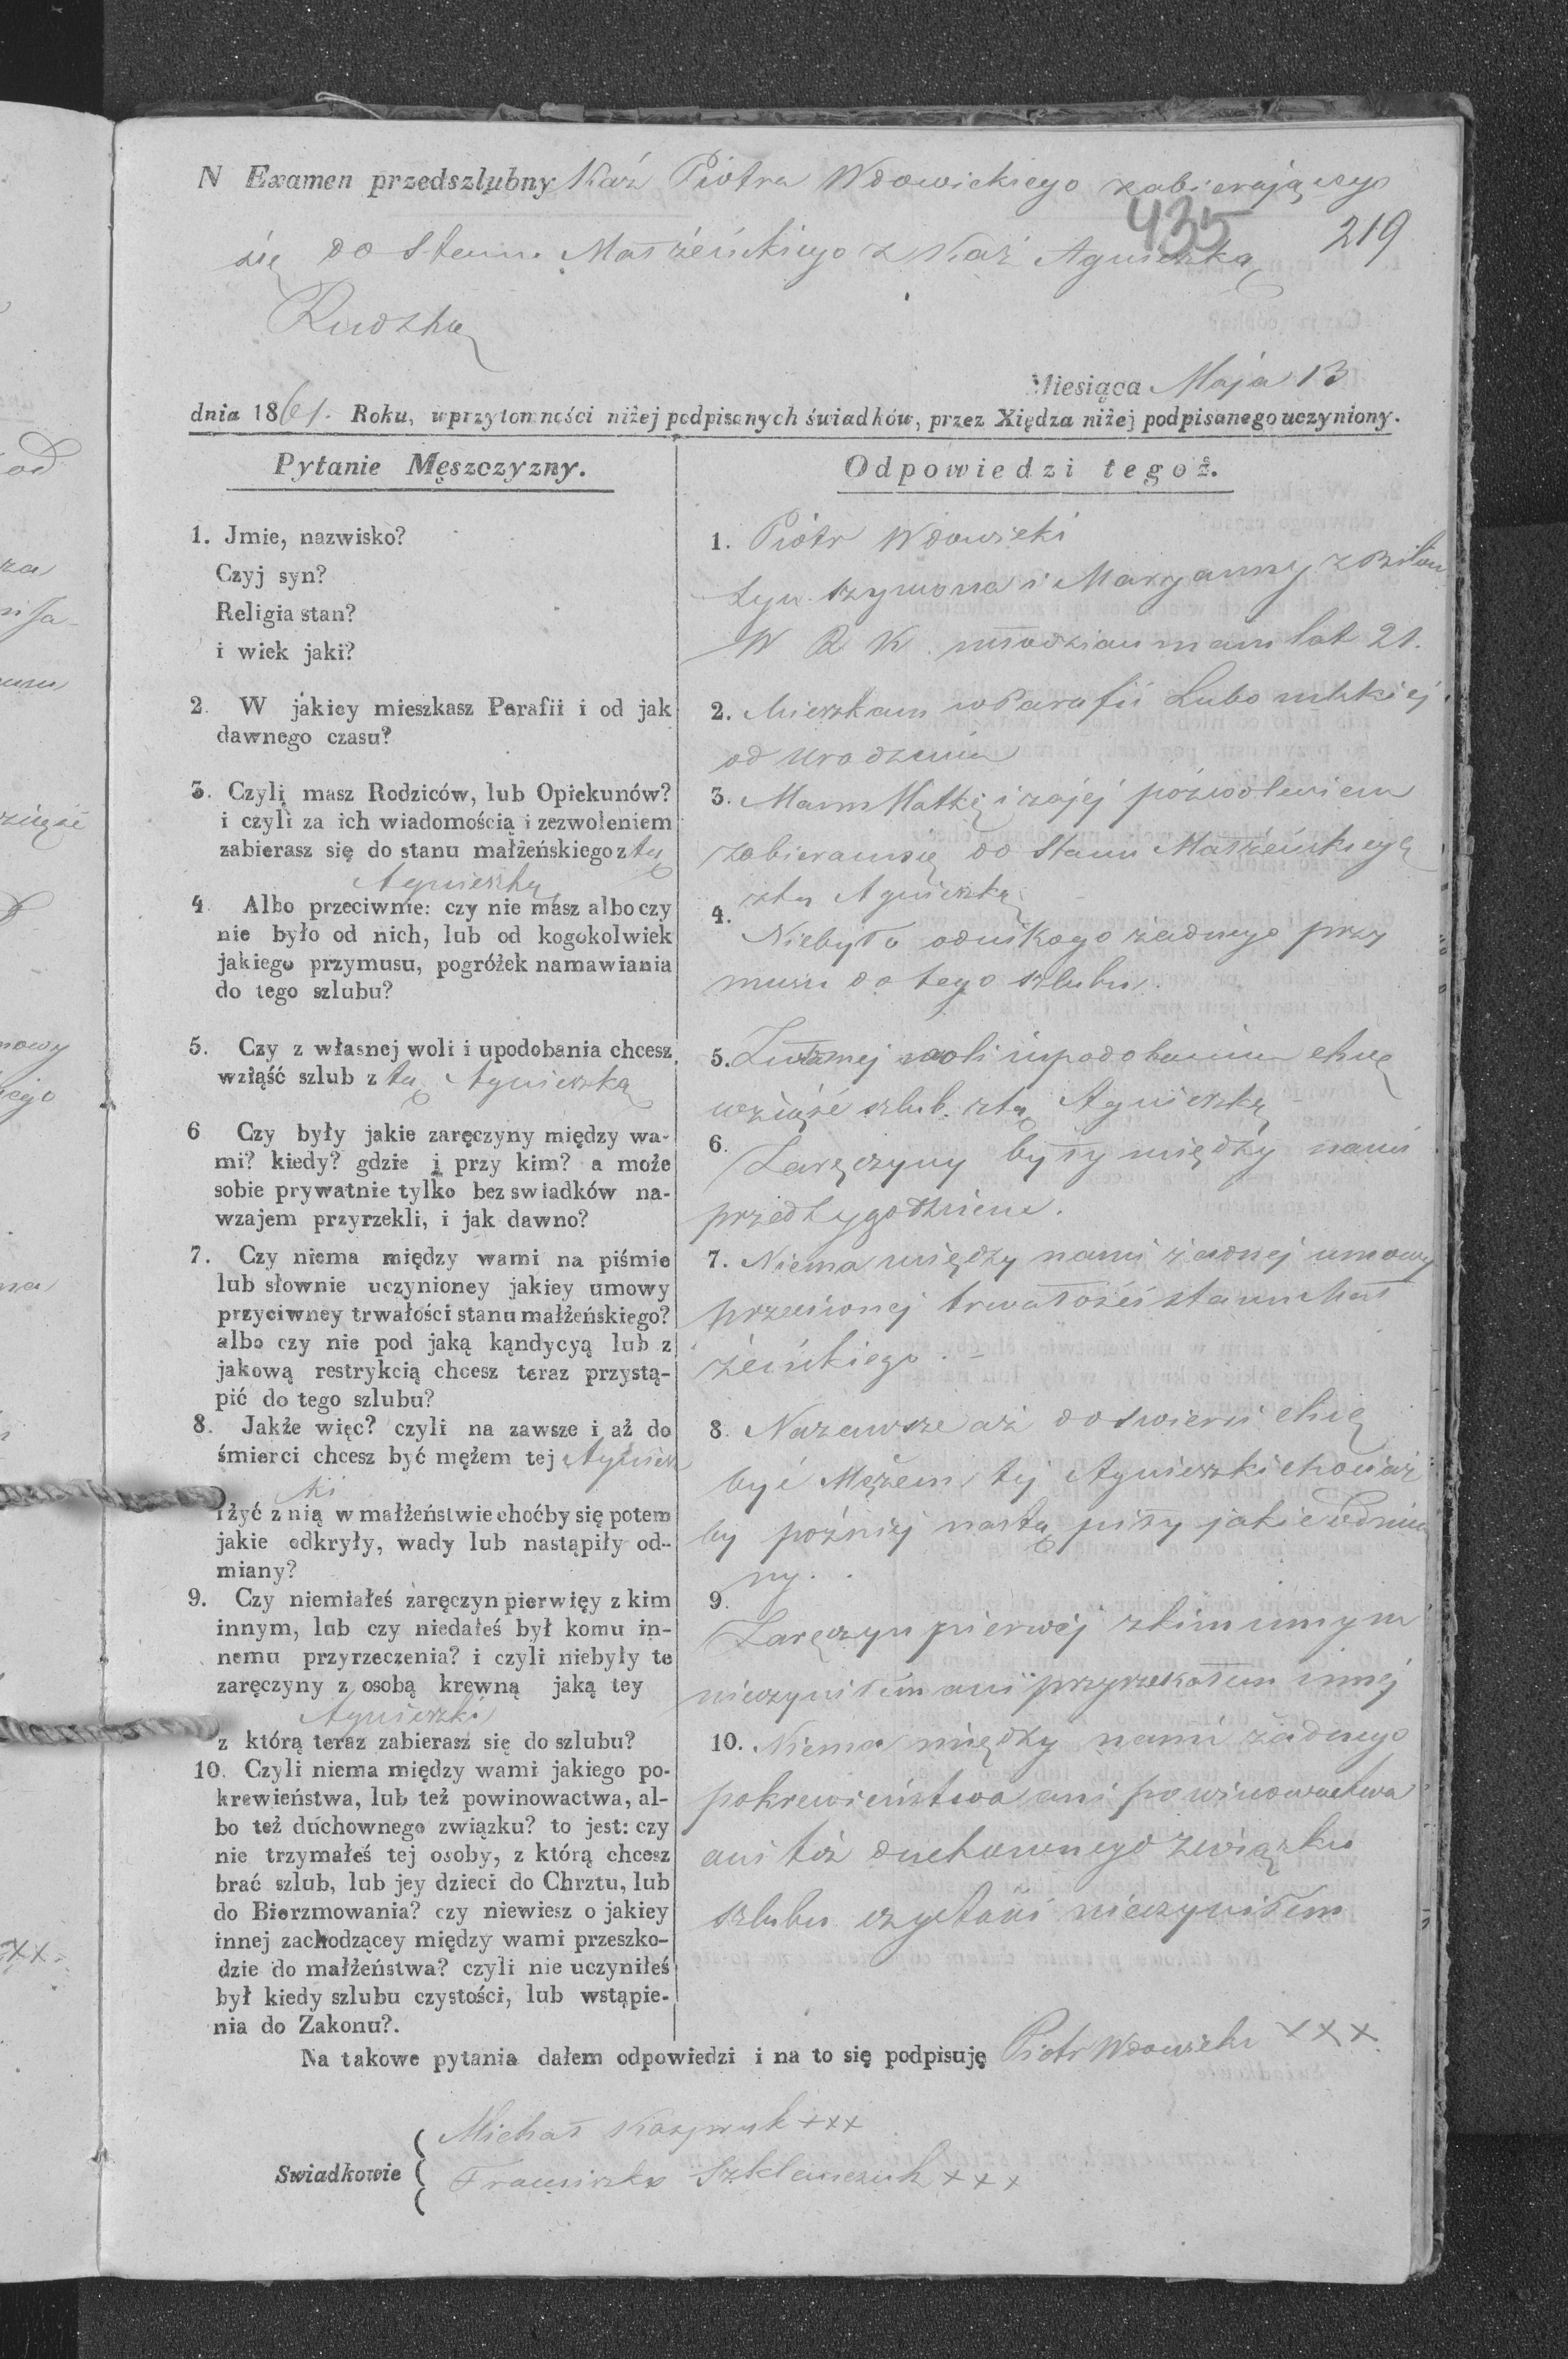 N Examen przedszlubny Kaź Piotra Wdowickiego zabierającego
435
219
się do Stanu Małżeńskiego z Kaź Agnieszką
Rudzką
Miesiąca Maja 13
dnia 1861. Roku, w przytomności niżej podpisanych świadków, przez Xiędza niżej podpisanego uczyniony.
Pytanie Męszczyzny.
1. Jmie, nazwisko?
Czyj syn?
Religia stan?
i wiek jaki?
2. W jakiey mieszkasz Parafii i od jak
dawnego czasu?
3. Czyli masz Rodziców, lub Opiekunów?
i czyli za ich wiadomością i zezwoleniem
zabierasz się do stanu małżeńskiego z tą
Agnieszką
4. Albo przeciwnie: czy nie masz albo czy
nie było od nich, lub od kogokolwiek
jakiego przymusu, pogróżek namawiania
do tego szlubu?
5. Czy z własnej woli i upodobania chcesz
wziąść szlub z tą Agnieszką
6 Czy były jakie zaręczyny między wa-
mi? kiedy? gdzie i przy kim? a może
sobie prywatnie tylko bez swiadków na-
wzajem przyrzekli, i jak dawno?
7. Czy niema między wami na piśmie
lub słownie uczynioney jakiey umowy
przyciwney trwałości stanu małżeńskiego?
albo czy nie pod jaką kąndycyą lub z
jakową restrykcią chcesz teraz przystą-
pić do tego szlubu?
8. Jakże więc? czyli na zawsze i aż do
śmierci chcesz być mężem tej Agniesz
ki
i żyć z nią w małżeństwie choćby się potem
jakie odkryły, wady lub nastąpiły od-
miany?
9. Czy niemiałeś zaręczyn pierwięy z kim
innym, lub czy niedałeś był komu in-
nemu przyrzeczenia? i czyli niebyły te
zaręczyny z osobą krewną jaką tey
Agnieszki
z którą teraz zabierasz się do szlubu?
10. Czyli niema między wami jakiego po-
krewieństwa, lub też powinowactwa, al-
bo też duchownego związku? to jest: czy
nie trzymałeś tej osoby, z którą chcesz
brać szlub, lub jey dzieci do Chrztu, lub
do Bierzmowania? czy niewiesz o jakiey
innej zachodzącey między wami przeszko-
dzie do małżeństwa? czyli nie uczyniłeś
był kiedy szlubu czystości, lub wstąpie-
nia do Zakonu?.
Odpowiedzi tegoż.
1. Piotr Wdowicki
Syn Szymona i Maryanny z
W R K. młodzian mam lat 21.
2. Mieszkam w Parafii Lubomlskiej
od urodzenia
3. Mam Matkę i zajej pozwoleniem
zabieram się do Stanu Małżeńskiego
z tą Agnieszką
4. Niebyło od nikogo żadnego przy
musu do tego szlubu.
5. Zwłasnej woli i upodobania chcę
wziąść szlub z tą Agnieszką
6. Zaręczyny były między nami
przed tygodniem.
7. Niema między nami żadnej umowy
przeciwnej trwałości stanu Mał
żeńskiego. -
8. Nazawsze aż do śmierci chcę
być Mężem tej Agnieszki chociaż
by później nastąpiły jakie odmia
ny.
9. Zaręczyn pierwej z kim innym
nieczyniłem ani przyrzekałem innej
10. Niema między nami żadnego
pokrewieństwa ani powinowactwa
ani też duchownego związku
szlubu czystości nieczyniłem
Na takowe pytania dałem odpowiedzi i na to się podpisuję Piotr Wdowicki XXX
Swiadkowie
Michał Kasprusk +++
Franciszek Szklaneczuk +++